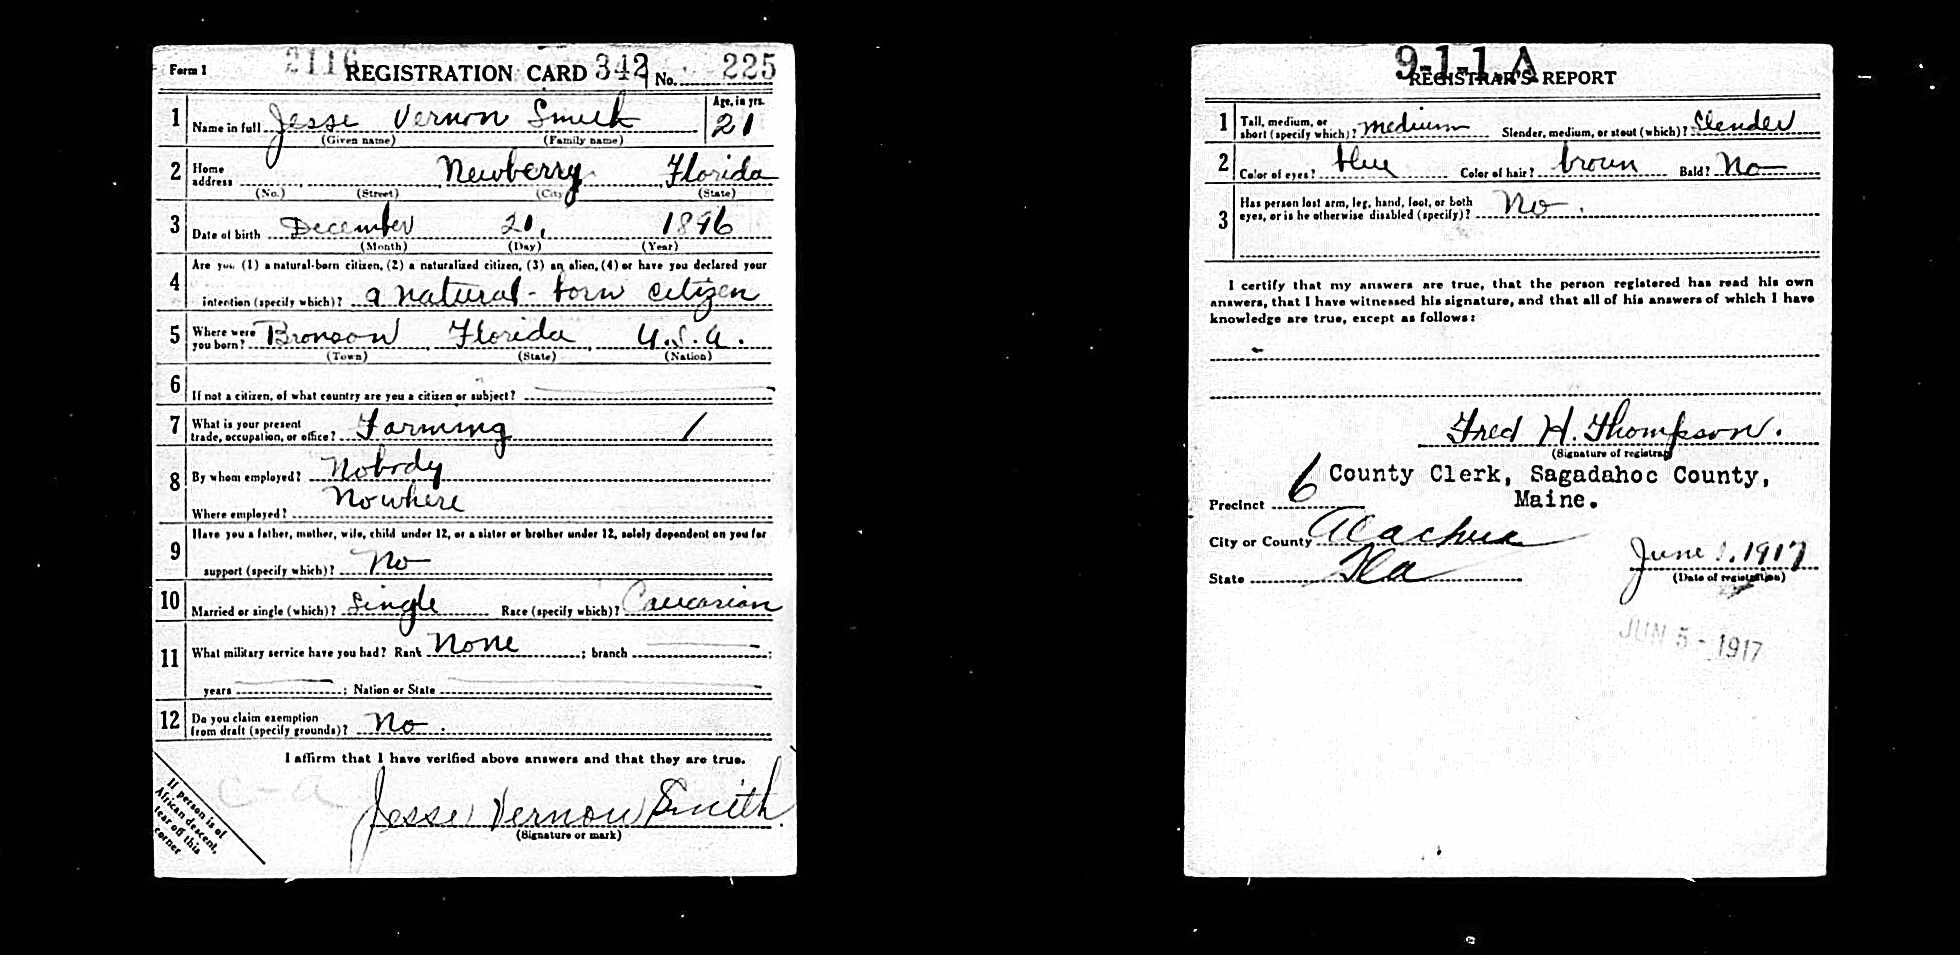 Form 1 2116 REGISTRATION CARD 342 No. 225
1 Name in full Jesse Vernon Smith Age, in yrs. 21
(Given name) (Family name)
2 Home address Newberry Florida
(No.) (Street) (City) (State)
3 Date of birth December 21, 1896
(Month) (Day) (Year)
4 Are you (1) a natural-born citizen, (2) a naturalized citizen, (3) an alien, (4) or have you declared your
intention (specify which)? a natural-born citizen
5 Where were you born? Bronson Florida U.S.A.
(Town) (State) (Nation)
6 If not a citizen, of what country are you a citizen or subject?
7 What is your present trade, occupation, or office? Farming 1
8 By whom employed? Nobody
Where employed? Nowhere
9 Have you a father, mother, wife, child under 12, or a sister or brother under 12, solely dependent on you for
support (specify which)? No
10 Married or single (which)? Single Race (specify which)? Caucasian
11 What military service have you had? Rank None ; branch ;
years ; Nation or State
12 Do you claim exemption from draft (specify grounds)? No.
I affirm that I have verified above answers and that they are true.
C-a
Jesse Vernon Smith
(Signature or mark)
If person is of
African descent,
tear off this
corner
9-1-1 A
REGISTRAR'S REPORT
1 Tall, medium, or short (specify which)? medium Slender, medium, or stout (which)? Slender
2 Color of eyes? blue Color of hair? brown Bald? No
3 Has person lost arm, leg, hand, foot, or both eyes, or is he otherwise disabled (specify)? No.
I certify that my answers are true, that the person registered has read his own
answers, that I have witnessed his signature, and that all of his answers of which I have
knowledge are true, except as follows:
Fred H. Thompson.
(Signature of registrar)
County Clerk, Sagadahoc County,
Precinct 6 Maine.
City or County Alachua
State Fla June 1, 1917
(Date of registration)
JUN 5 - 1917